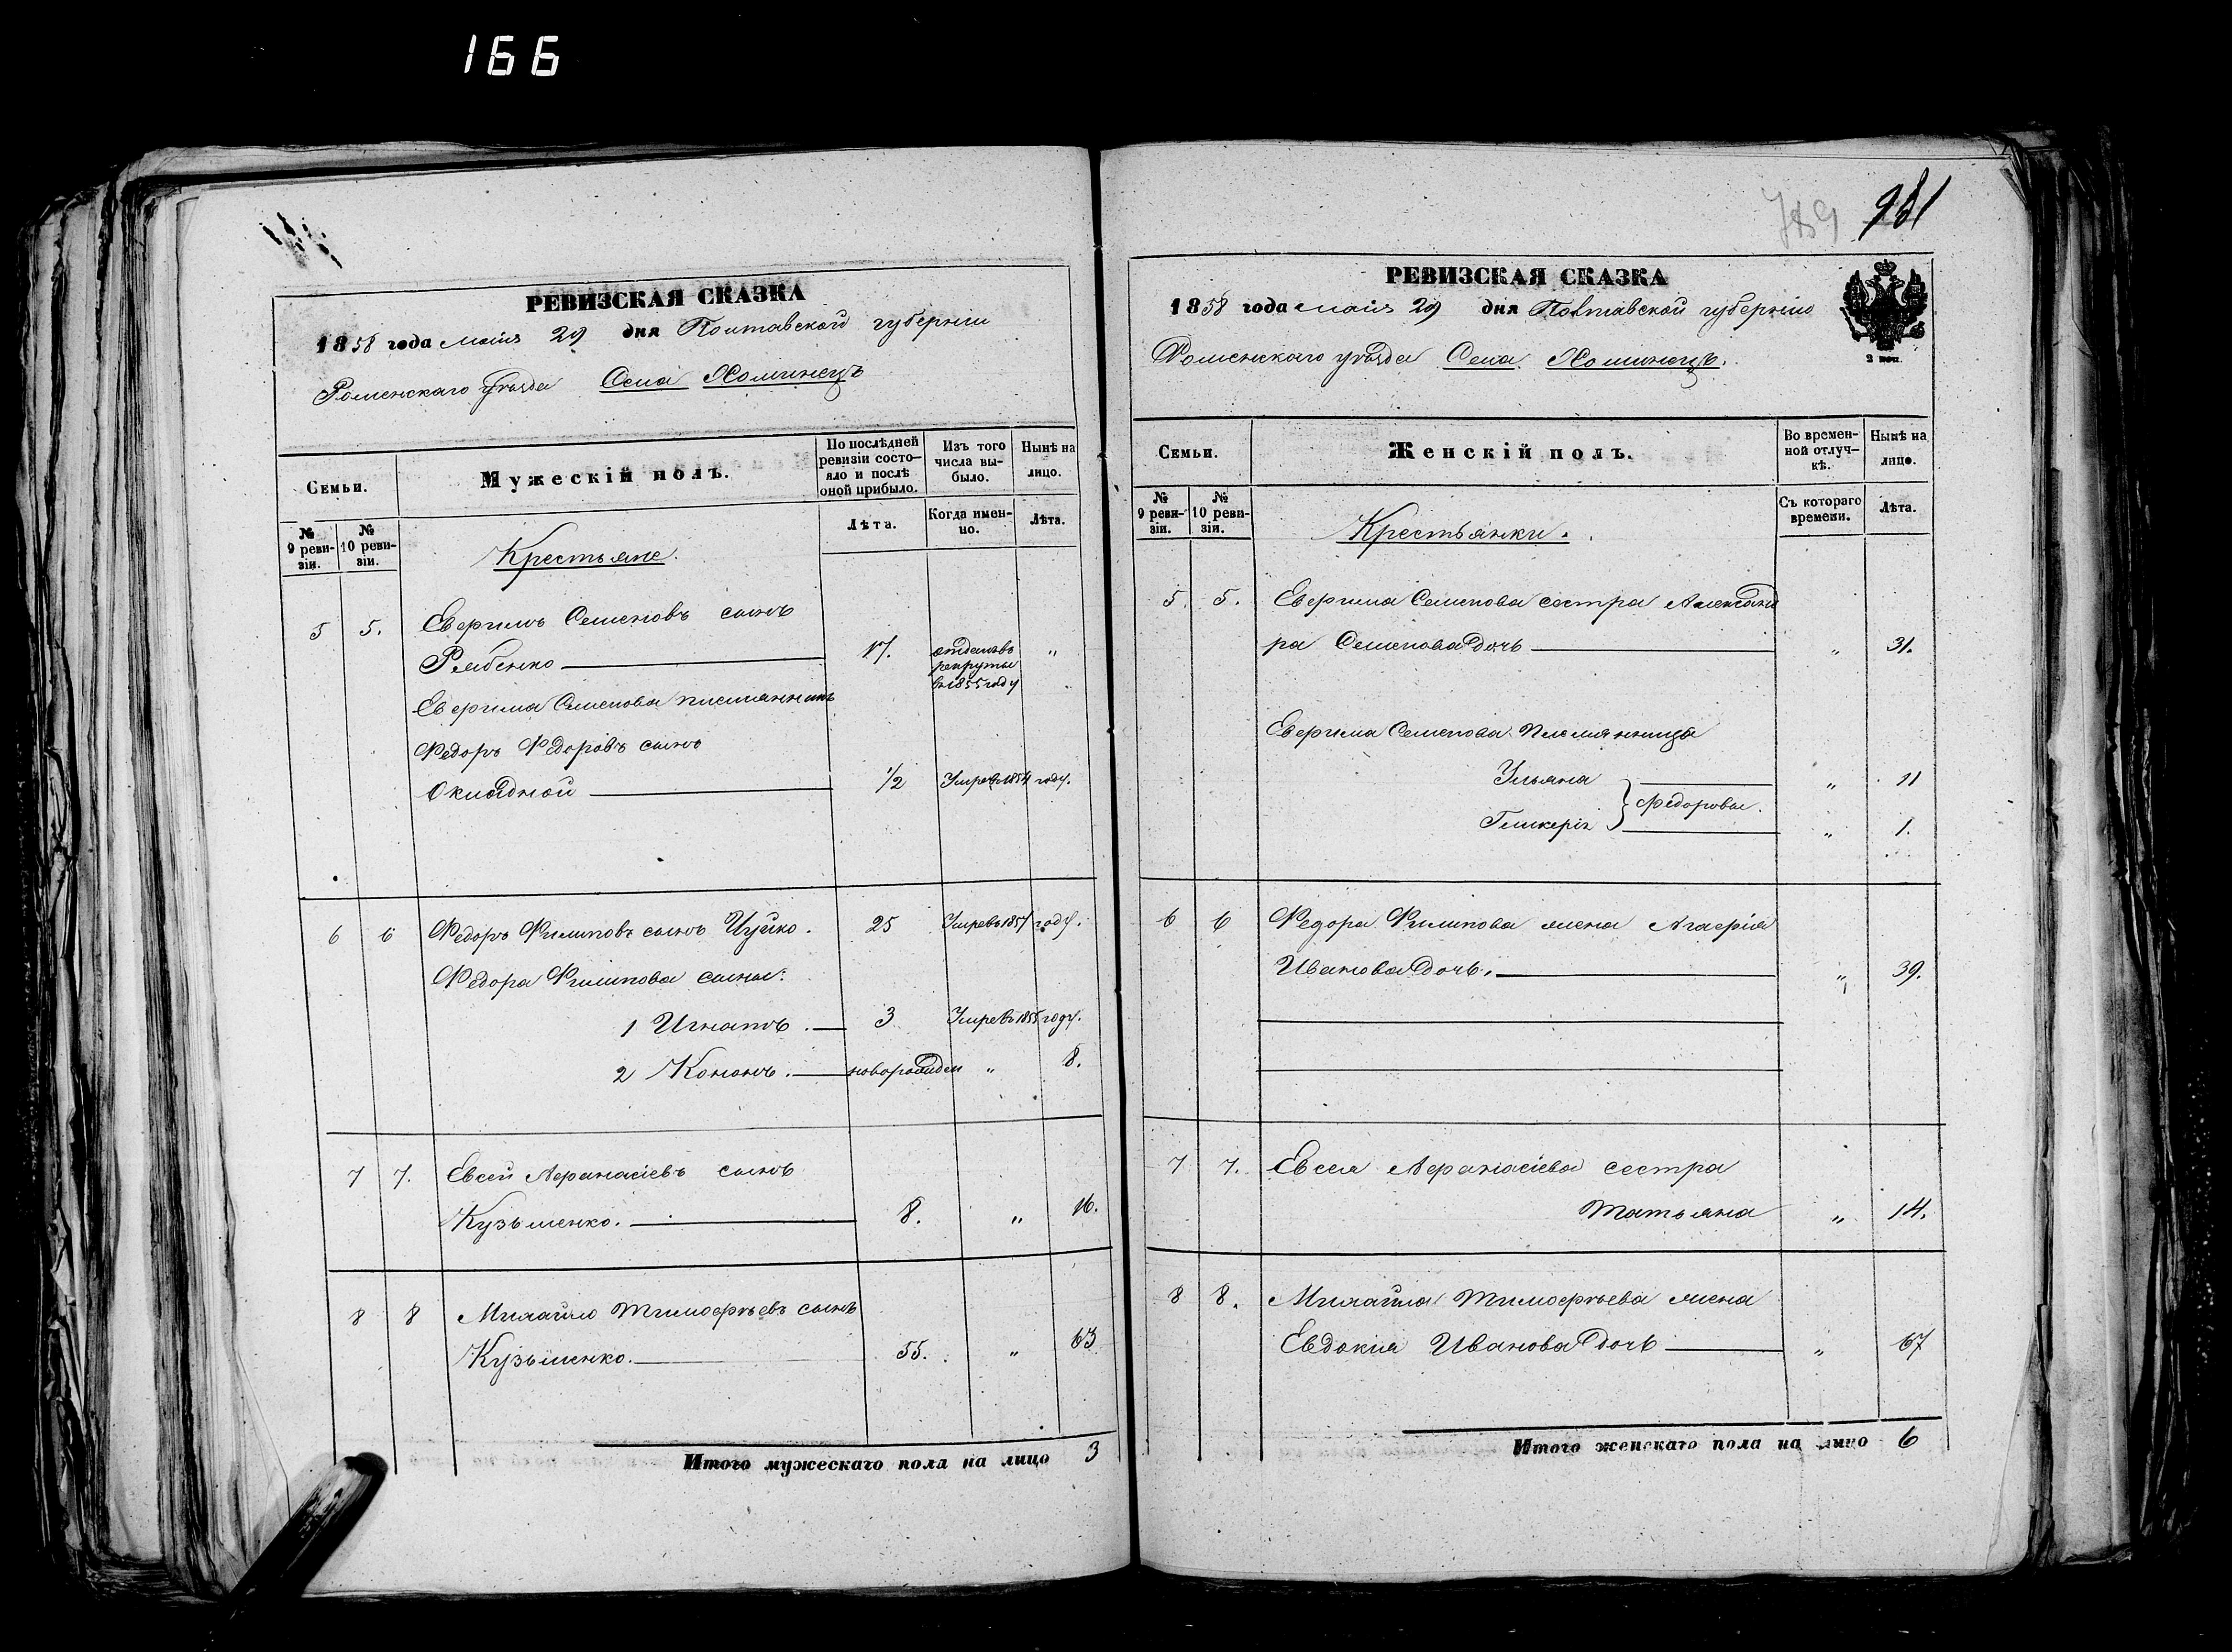 166
РЕВИЗСКАЯ СКАЗКА
1858 года маія 29 дня Полтавской губерніи
Роменскаго уѣзда Села Хоминецъ
Семьи.
№ 9 реви-зіи.
№ 10 реви-зіи.
Мужескій полъ.
По послѣдней ревизіи состо-яло и послѣ оной прибыло.
Лѣта.
Изъ того числа вы-было.
Когда имен-но.
Нынѣ на лицо.
Лѣта.
Крестьяне.
5 5. Евфимъ Семеновъ сынъ
Рябенко 17. отданъ въ рекруты въ 1855 году "
Евфима Семенова племянникъ
Федоръ Федоровъ сынъ
Окладной 1/2 Умре въ 1854 году.
6 6 Федоръ Филиповъ сынъ Чуйко. 25 Умре въ 1857 году.
Федора Филипова сыны:
1 Игнатъ. 3 Умре въ 1855 году.
2 Кононъ. новорожден " 8.
7 7. Евсей Афанасіевъ сынъ
Кузьменко. 8. " 16.
8 8 Михайло Тимофѣевъ сынъ
Кузьменко. 55. " 63
Итого мужескаго пола на лицо 3
789 981
РЕВИЗСКАЯ СКАЗКА
1858 года маія 29 дня Полтавской губерніи
Роменскаго уѣзда Села Хоминецъ.
2 коп.
Семьи.
№ 9 реви-зіи.
№ 10 реви-зіи.
Женскій полъ.
Во времен-ной отлуч-кѣ.
Съ котораго времени.
Нынѣ на лицо.
Лѣта.
Крестьянки.
5. 5. Евфима Семенова сестра Александ
ра Семенова дочь " 31.
Евфима Семенова племянницы
Ульяна " 11
Федоровы.
Гликерія " 1.
6 6 Федора Филипова жена Агафія
Иванова дочь. " 39.
7 7. Евсея Афанасіева сестра
Татьяна " 14.
8 8. Михайла Тимофѣева жена
Евдокия Иванова дочь " 67
Итого женскаго пола на лицо 6